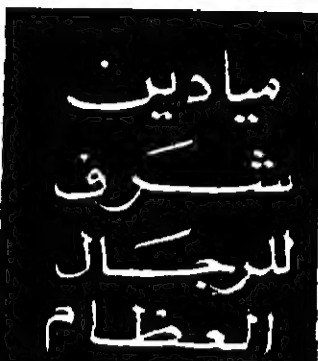 ميادين
شَرف
للرجَال
العظام